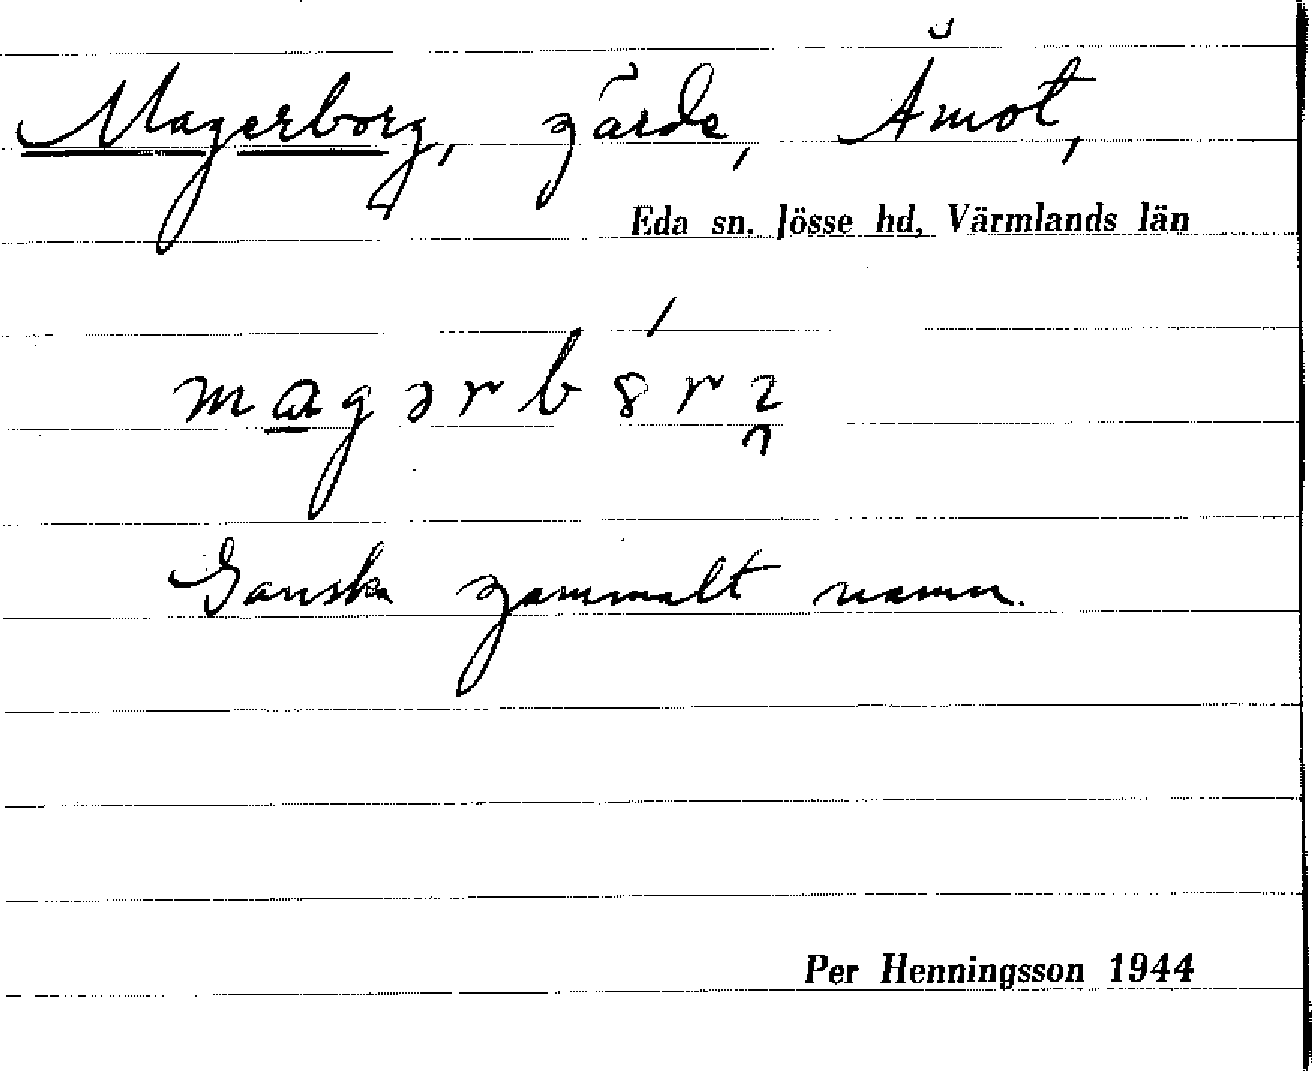 Magerborg, gärde, Åmot,
Eda sn. Jösse hd, Värmlands län
Ganska gammalt namn.
Per Henningsson 1944